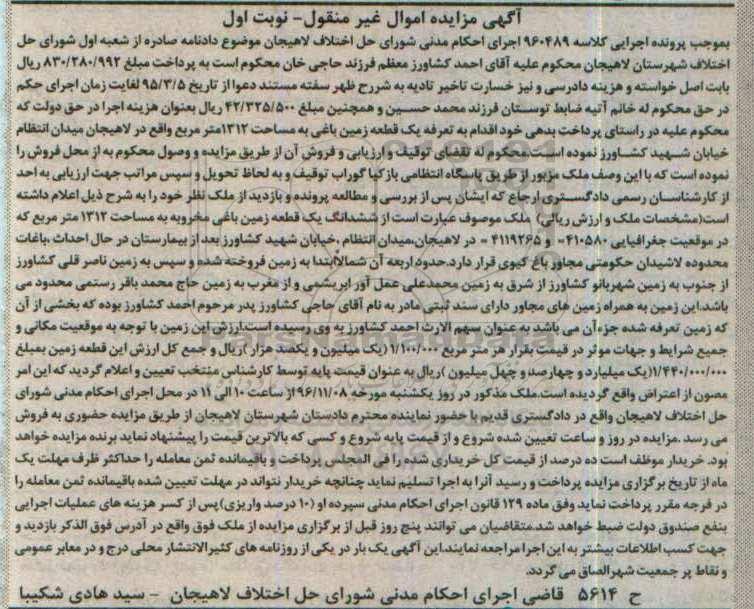 آگهی مزایده اموال غیر منقول- نوبت اول
بموجب پرونده اجرایی کلاسه ۹۶۰۴۸۹ اجرای احکام مدنی شورای حل اختلاف لاهیجان موضوع دادنامه صادره از شعبه اول شورای حل
اختلاف شهرستان لاهیجان محکوم علیه آقای احمد کشاورز معظم فرزند حاجی خان محکوم است به پرداخت مبلغ ۸۳۰/۲۸۰/۹۹۲ ریال
بابت اصل خواسته و هزینه دادرسی و نیز خسارت تاخیر تادیه به شررح ظهر سفته مستند دعوا از تاریخ ۹۵/۳/۵ لغایت زمان اجرای حکم
در حق محکوم له خانم آتیه ضابط توستان فرزند محمد حسین و همچنین مبلغ ۴۲/۳۲۵/۵۰۰ ریال بعنوان هزینه اجرا در حق دولت که
محکوم علیه در راستای پرداخت بدهی خود اقدام به تعرفه یک قطعه زمین باغی به مساحت ۱۳۱۲متر مربع واقع در لاهیجان میدان انتظام
خیابان شهید کشاورز نموده است.محکوم له تقاضای توقیف و ارزیابی و فروش آن از طریق مزایده و وصول محکوم به از محل فروش را
نموده است که با این وصف ملک مزبور از طریق پاسگاه انتظامی بازکیا گوراب توقیف و به لحاظ تحویل و سپس مراتب جهت ارزیابی به احد
از کارشناسان رسمی دادگستری ارجاع که ایشان پس از بررسی و مطالعه پرونده و بازدید از ملک نظر خود را به شرح ذیل اعلام داشته
است(مشخصات ملک و ارزش ریالی) ملک موصوف عبارت است از ششدانگ یک قطعه زمین باغی مخروبه به مساحت ۱۳۱۲ متر مربع که
در موقعیت جغرافیایی ۴۱۰۵۸۰= و ۴۱۱۹۲۶۵ = در لاهیجان،میدان انتظام ،خیابان شهید کشاورز بعد از بیمارستان در حال احداث ،باغات
محدوده لاشیدان حکومتی مجاور باغ کیوی قرار دارد.حدود اربعه آن شمالاابتدا به زمین فروخته شده و سپس به زمین ناصر قلی کشاورز
از جنوب به زمین شهربانو کشاورز از شرق به زمین محمدعلی عمل آور ابریشمی و از مغرب به زمین حاج محمد باقر رستمی محدود می
باشد.این زمین به همراه زمین های مجاور دارای سند ثبتی مادر به نام آقای حاجی کشاورز پدر مرحوم احمد کشاورز بوده که بخشی از آن
که زمین تعرفه شده جزءآن می باشد به عنوان سهم الارث احمد کشاورز به وی رسیده است.ارزش این زمین با توجه به موقعیت مکانی و
جمیع شرایط و جهات موثر در قیمت بقرار هر متر مربع ۱/۱۰۰/۰۰۰ (یک میلیون و یکصد هزار )ریال و جمع کل ارزش این قطعه زمین بمبلغ
۱/۴۴۰/۰۰۰/۰۰۰(یک میلیارد و چهارصد و چهل میلیون )ریال به عنوان قیمت پایه توسط کارشناس منتخب تعیین و اعلام گردید که این امر
مصون از اعتراض واقع گردیده است.ملک مذکور در روز یکشنبه مورخه ۹۶/۱۱/۰۸از ساعت ۱۰ الی ۱۱ در محل اجرای احکام مدنی شورای
حل اختلاف لاهیجان واقع در دادگستری قدیم با حضور نماینده محترم دادستان شهرستان لاهیجان از طریق مزایده حضوری به فروش
می رسد .مزایده در روز و ساعت تعیین شده شروع و از قیمت پایه شروع و کسی که بالاترین قیمت را پیشنهاد نماید برنده مزایده خواهد
بود. خریدار موظف است ده درصد از قیمت کل خریداری شده را فی المجلس پرداخت و باقیمانده ثمن معامله را حداکثر ظرف مهلت یک
ماه از تاریخ برگزاری مزایده پرداخت و رسید آنرا به اجرا تسلیم نماید چنانچه خریدار نتواند در مهلت تعیین شده باقیمانده ثمن معامله را
در فرجه مقرر پرداخت نماید وفق ماده ۱۲۹ قانون اجرای احکام مدنی سپرده او (۱۰ درصد واریزی)پس از کسر هزینه های عملیات اجرایی
بنفع صندوق دولت ضبط خواهد شد.متقاضیان می توانند پنج روز قبل از برگزاری مزایده از ملک فوق واقع در آدرس فوق الذکر بازدید و
جهت کسب اطلاعات بیشتر به این اجرا مراجعه نمایند.این آگهی یک بار در یکی از روزنامه های کثیرالانتشار محلی درج و در معابر عمومی
و نقاط پر جمعیت شهرالصاق می گردد.
ح ۵۶۱۴ قاضی اجرای احکام مدنی شورای حل اختلاف لاهیجان - سید هادی شکیبا